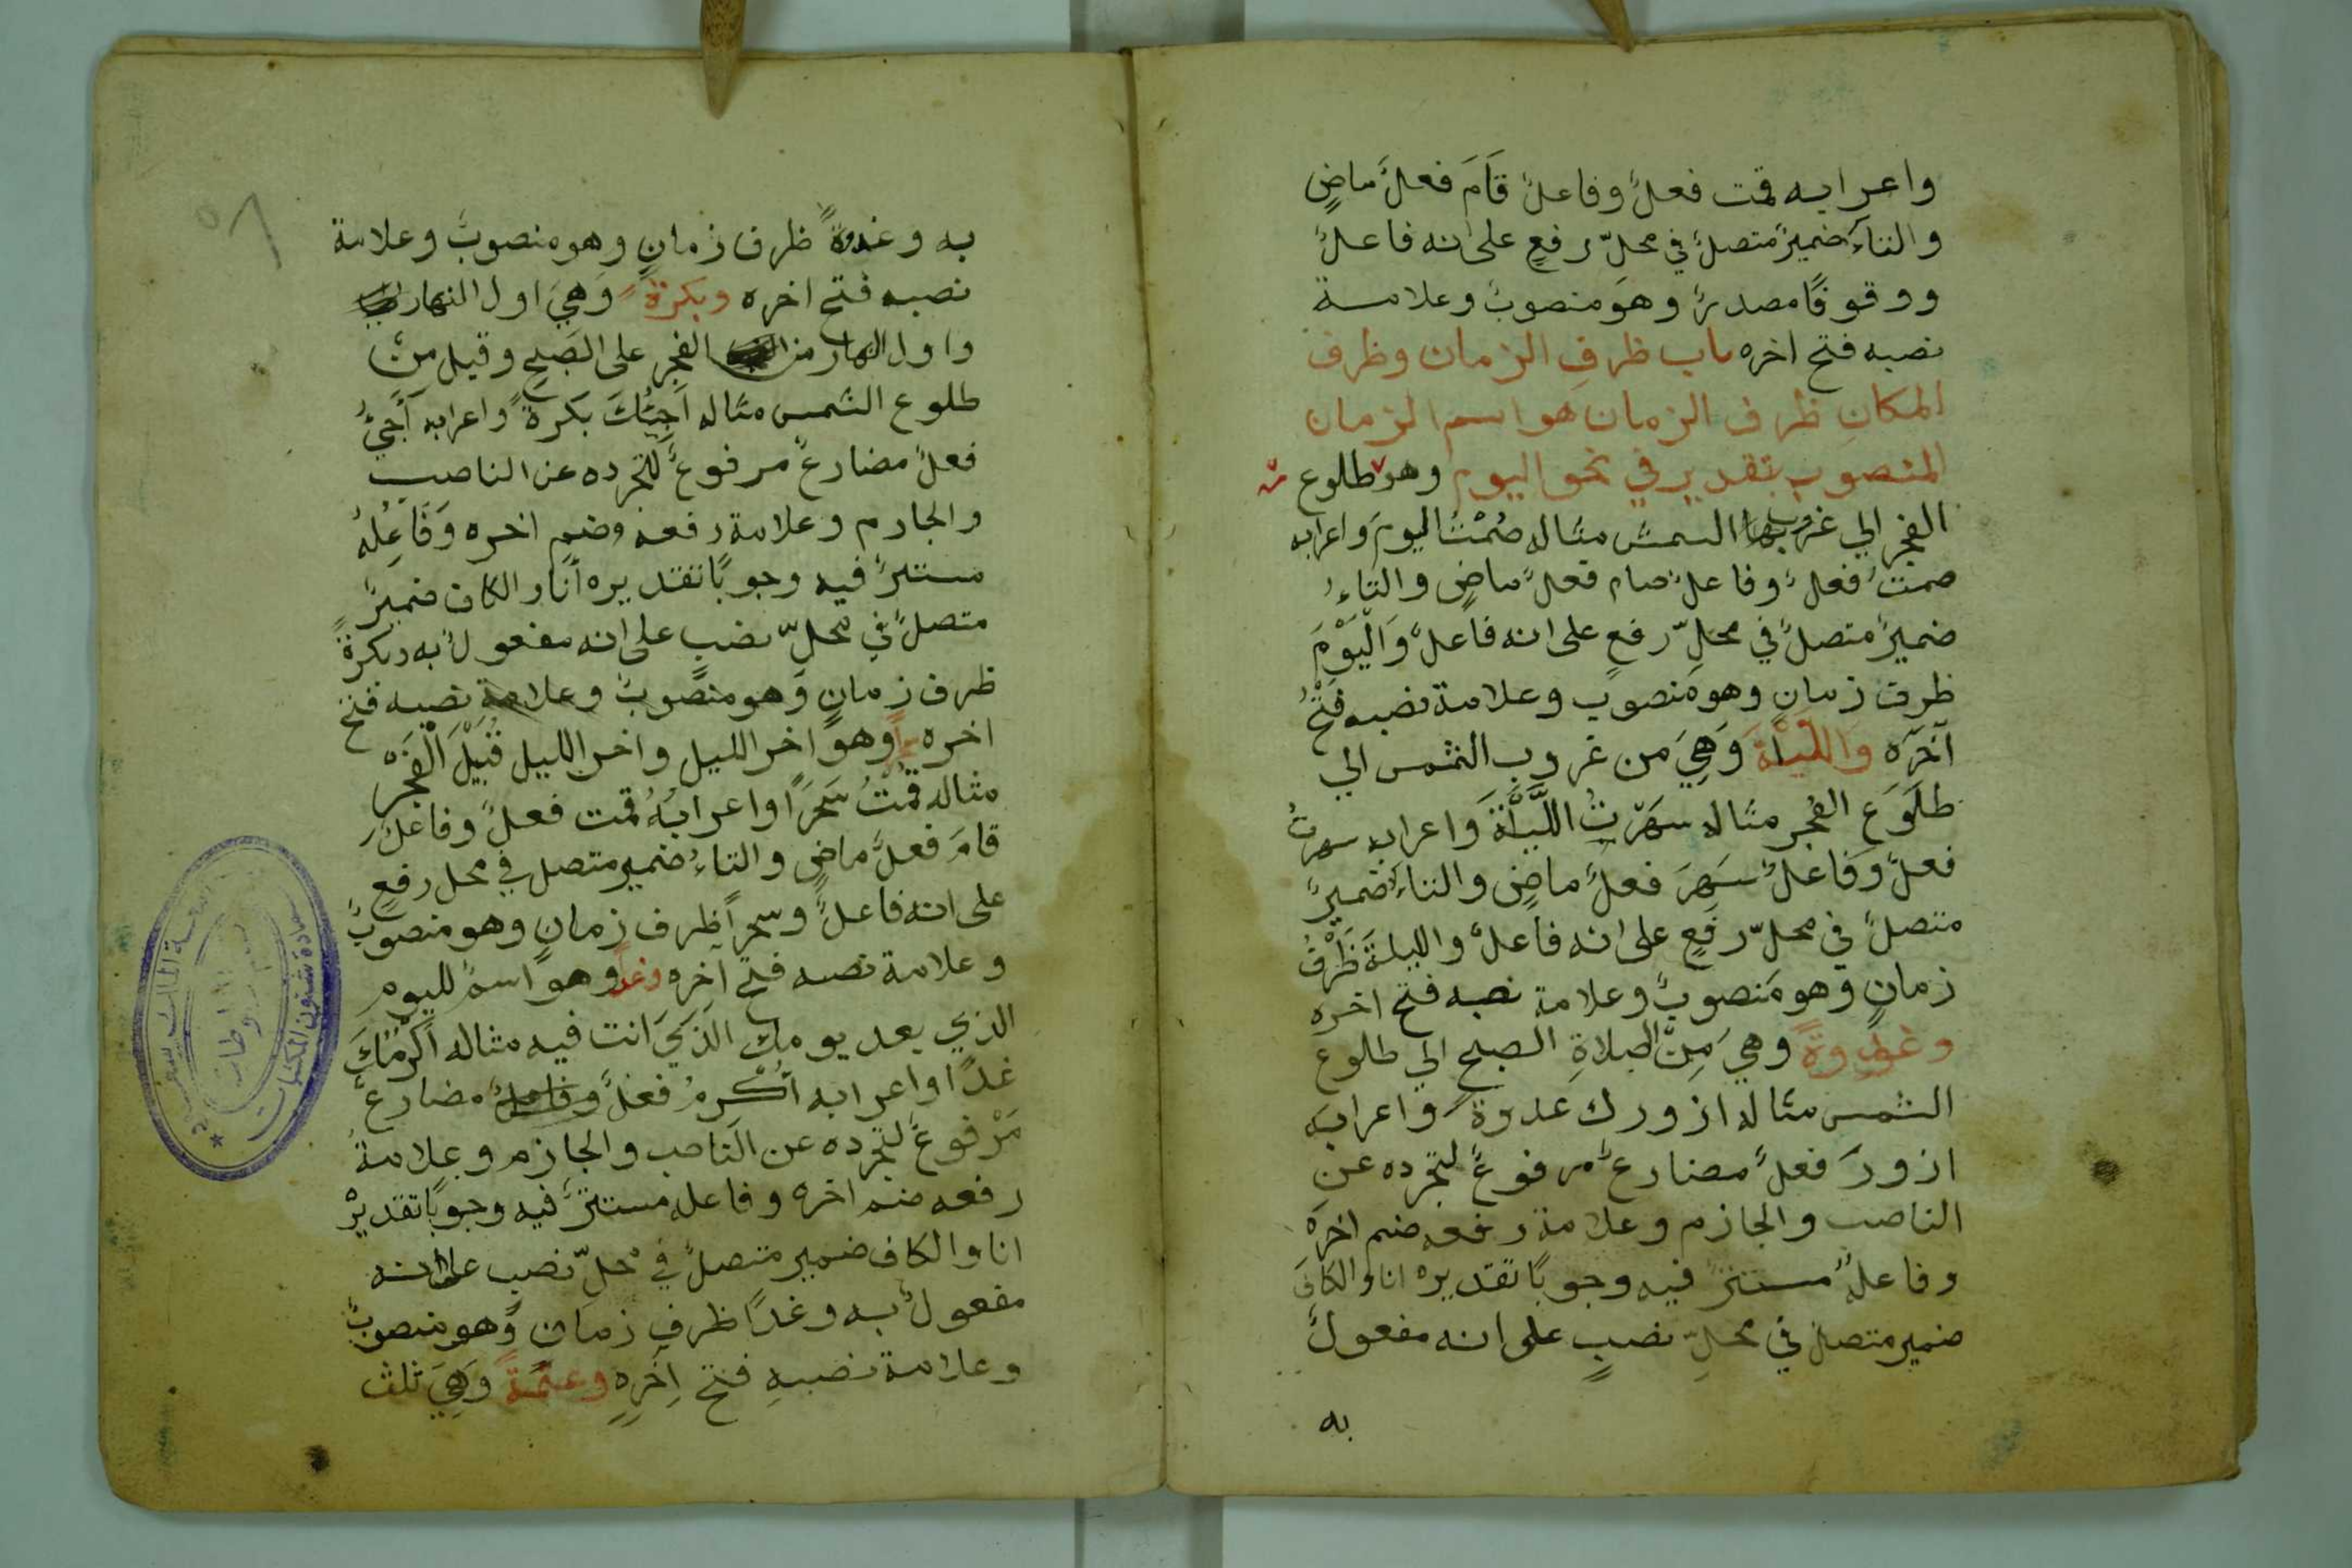 واعرابه قمت فعلٌ وفاعلٌ قَامَ فعلٌ ماضٍ
والتاءُ ضميرٌ متصلٌ في محلّ رفعٍ على انه فاعلٌ
ووقوفًا مصدرٌ وهوَ منصوبٌ وعلامة
نصبه فتح اخره باب ظرفِ الزمان وظرف
المكانِ ظرف الزمان هو اسم الزمان
المنصوب بتقدير في نحو اليوم وهو من طلوع
الفجر الي غروب الشمس مثاله صُمْتُ اليومَ واعرابه
صمتُ فعلٌ وفاعلٌ صام فعلٌ ماضٍ والتاءُ
ضميرٌ متصلٌ في محلِّ رفعٍ على انه فاعلٌ وَالْيَوْمَ
ظرف زمانٍ وهو منصوب وعلامة نصبه فَتْحُ
آخره وَاللَّيْلَةَ وَهِيَ من غروب الشمس الي
طلوع الفجر مثاله سَهَرْتُ اللَّيْلَةَ وَاعرابه سهرتُ
فعلٌ وَفاعلٌ سَهِرَ فعلٌ ماضٍ والتاءُ ضميرٌ
متصلٌ في محلّ رفعٍ على انه فاعلٌ والليلةَ ظَرْفُ
زمانٍ وهو منصوبٌ وعلامة نصبه فتح اخره
وغدوةً وهي مِنْ صلاةِ الصبح الي طلوع
الشمس مثاله ازورك غدوةً واعرابه
ازورُ فعلٌ مضارعٌ مرفوعٌ لتجرده عن
الناصب والجازم وعلامة رفعه ضم اخره
وفاعلهُ مستترٌ فيه وجوبًا تقديره انا والكافُ
ضمير متصل في محلِّ نصبٍ على انه مفعولٌ
به
به وغدوةً ظرف زمانٍ وهو منصوبٌ وعلامة
نصبه فتح اخره وبكرةً وَهِيَ اول النهار
واول النهار من الفجر على الصحيح وقيل من
طلوع الشمس مثاله اَجِيئُكَ بكرةً واعرابه اَجِيُّ
فعلٌ مضارعٌ مرفوعٌ لتجرده عن الناصب
والجازم وعلامة رفعه ضم اخره وَفَاعِلُهُ
مستترٌ فيه وجوبًا تقديره أنا والكاف ضميرٌ
متصلٌ في محلّ نصب على انه مفعولٌ به وبكرةً
ظرف زمانٍ وَهو منصوبٌ وعلامة نصبه فتح
اخره وهو اخر الليل واخر الليل قُبَيْلَ الْفَجْرِ
مثاله قمْتُ سَحَرًا واعرابُهُ قمت فعلٌ وفاعلٌ
قامَ فعلٌ ماضٍ والتاءُ ضمير متصل في محل رفعٍ
على انه فاعلٌ وسحرًا ظرف زمانٍ وهو منصوبٌ
وعلامة نصبه فتح آخره وغدًا وهو اسمٌ لليوم
الذي بعد يومك الَّذِيَ انت فيه مثاله أُكْرِمُكَ
غدًا واعرابه أكْرِمُ فعلٌ مضارعٌ
مَرْفوعٌ لتجرده عن الناصب والجازم وعلامةُ
رفعه ضم اخره وفاعله مستترٌ فيه وجوبًا تقديرُه
انا والكاف ضمير متصلٌ في محلّ نصب على انه
مفعولٌ به وغدًا ظرف زمان وهو منصوبٌ
وعلامة نصبهِ فتح اخرِهِ وعتمةً وَهِيَ ثلث